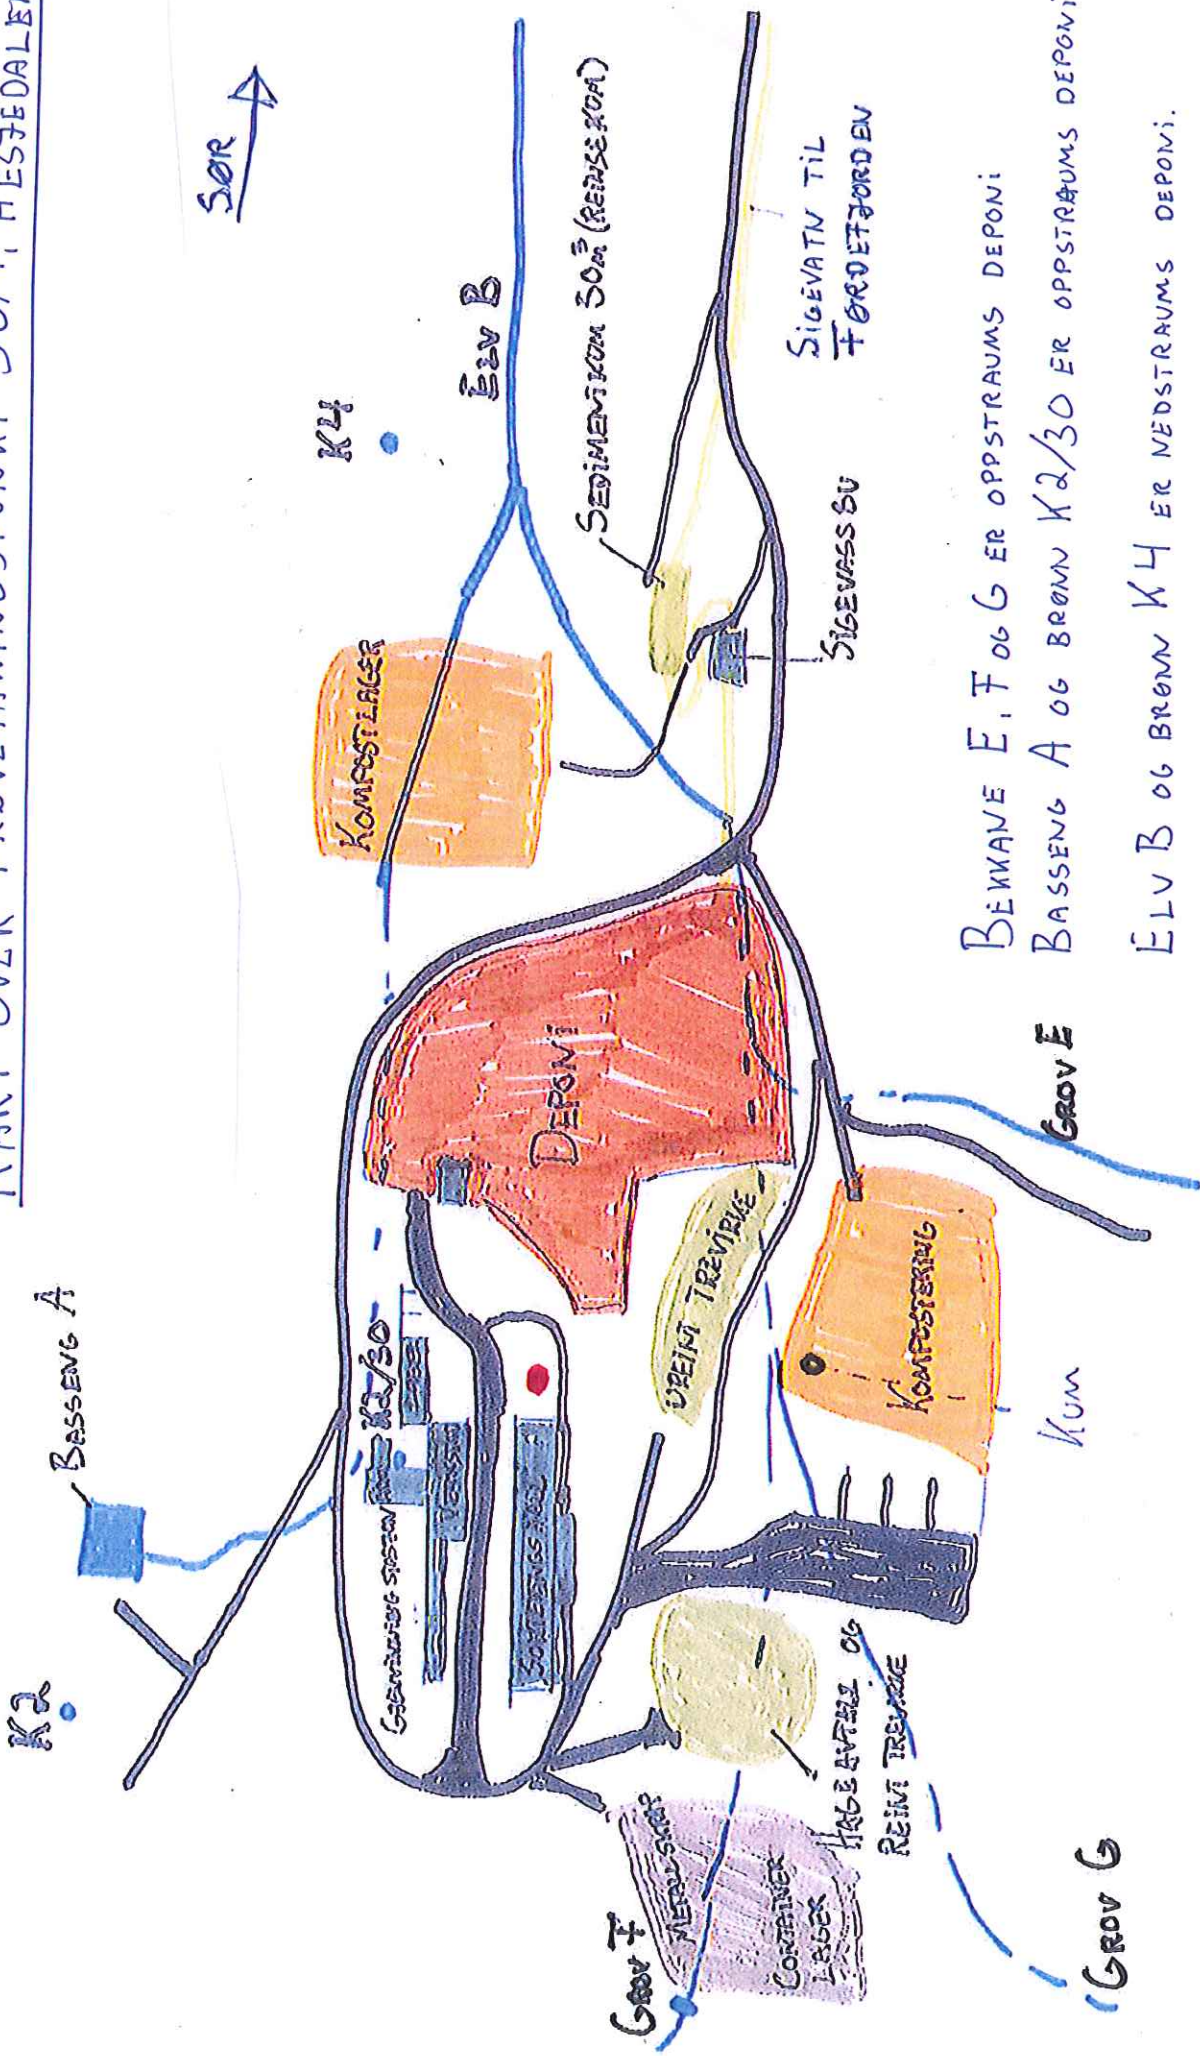 SØR
BASSENG A
K2
K4
ELV B
SEDIMENTKUM 30M³ (REINSEKUM)
SIGEVATN TIL
FØRDEFJORDEN
SIGEVASSBU
KOMPOSTLAGER
DEPONI
K2/30
SORTERINGSHALL
UREINT TREVIRKE
KOMPOSTERING
KUM
GROV E
HAGEAVFALL OG
REINT TREVIRKE
GROV F
METALLSKRAP
CONTAINER
LAGER
GROV G
BEKKANE E, F OG G ER OPPSTRAUMS DEPONI
BASSENG A OG BRØNN K2/30 ER OPPSTRAUMS DEPONI
ELV B OG BRØNN K4 ER NEDSTRAUMS DEPONI.